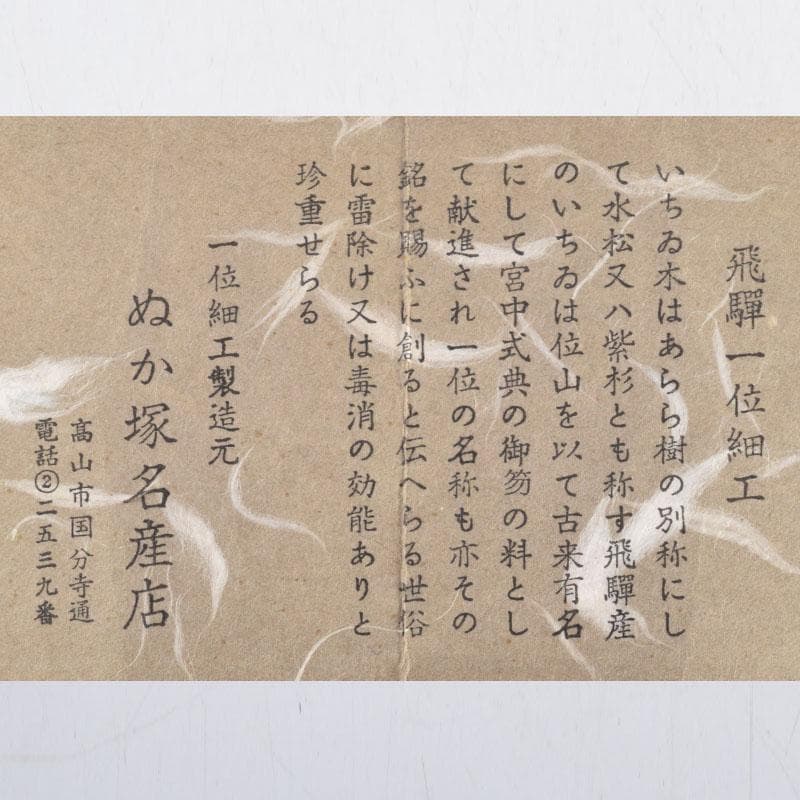 飛騨一位細工
いちゐ木はあらら樹の別称にし
て水松又ハ紫杉とも称す飛騨産
のいちゐは位山を以て古来有名
にして宮中式典の御笏の料とし
て献進され一位の名称も亦その
銘を賜ふに創ると伝へらる世俗
に雷除け又は毒消の効能ありと
珍重せらる
一位細工製造元
ぬか塚名産店
高山市国分寺通
電話②二五三九番